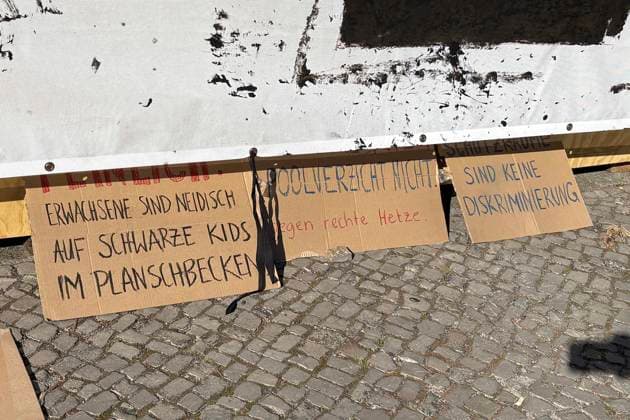 ERWACHSENE SIND NEIDISCH
AUF SCHWARZE KIDS
IM PLANSCHBECKEN
POOLVERZICHT NICHT.
gegen rechte Hetze.
SCHUTZRÄUME
SIND KEINE
DISKRIMINIERUNG.